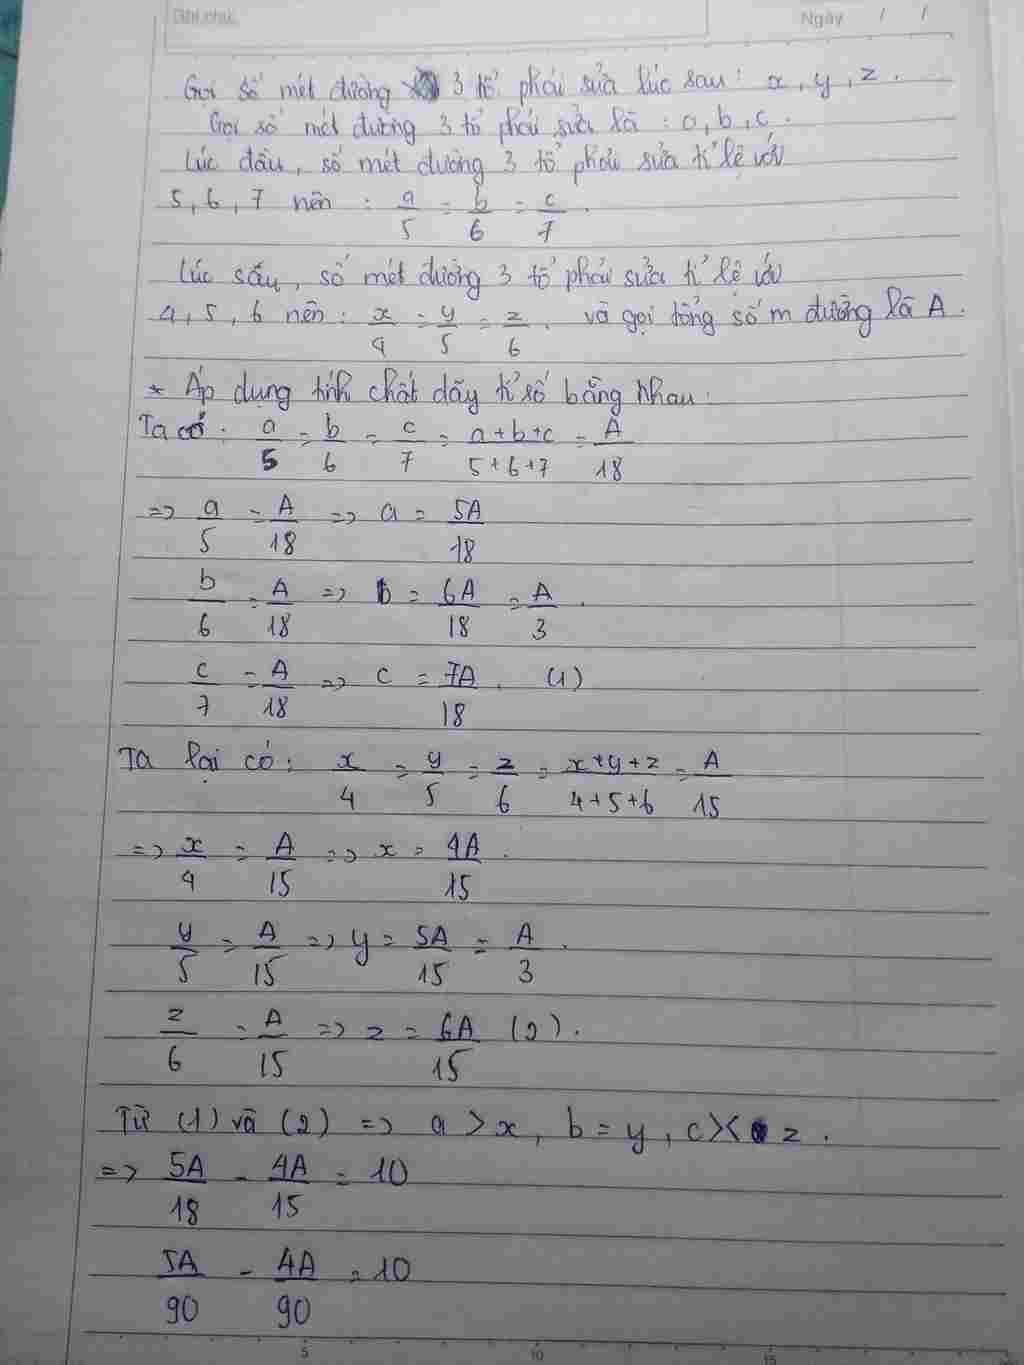 Ghi chú: Ngày / /
Gọi số mét đường 3 tổ phải sửa lúc sau: x, y, z.
Gọi số mét đường 3 tổ phải sửa là: a, b, c.
Lúc đầu, số mét đường 3 tổ phải sửa tỉ lệ với
5, 6, 7 nên: a/5 = b/6 = c/7.
Lúc sau, số mét đường 3 tổ phải sửa tỉ lệ với
4, 5, 6 nên: x/4 = y/5 = z/6. và gọi tổng số m đường là A.
* Áp dụng tính chất dãy tỉ số bằng nhau:
Ta có: a/5 = b/6 = c/7 = a+b+c/5+6+7 = A/18
=> a/5 = A/18 => a = 5A/18
b/6 = A/18 => b = 6A/18 = A/3.
c/7 = A/18 => c = 7A/18. (1)
Ta lại có: x/4 = y/5 = z/6 = x+y+z/4+5+6 = A/15
=> x/4 = A/15 => x = 4A/15.
y/5 = A/15 => y = 5A/15 = A/3.
z/6 = A/15 => z = 6A/15 (2).
Từ (1) và (2) => a > x, b = y, c >< z.
=> 5A/18 - 4A/15 = 10
5A/90 - 4A/90 = 10
5 10 15